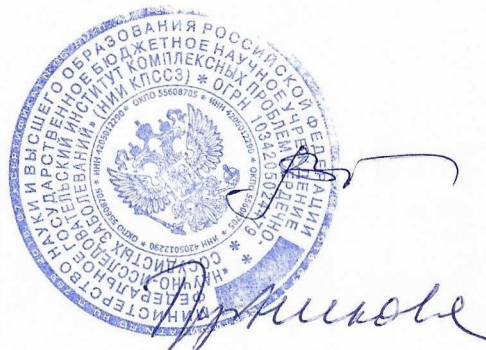 МИНИСТЕРСТВО НАУКИ И ВЫСШЕГО ОБРАЗОВАНИЯ РОССИЙСКОЙ ФЕДЕРАЦИИ
ФЕДЕРАЛЬНОЕ ГОСУДАРСТВЕННОЕ БЮДЖЕТНОЕ НАУЧНОЕ УЧРЕЖДЕНИЕ
"НАУЧНО-ИССЛЕДОВАТЕЛЬСКИЙ ИНСТИТУТ КОМПЛЕКСНЫХ ПРОБЛЕМ СЕРДЕЧНО-
СОСУДИСТЫХ ЗАБОЛЕВАНИЙ" (НИИ КПССЗ) * ОГРН
* ИНН 4205012290 * ОКПО 55608705 * ИНН 4205012290 * ОКПО 55608705